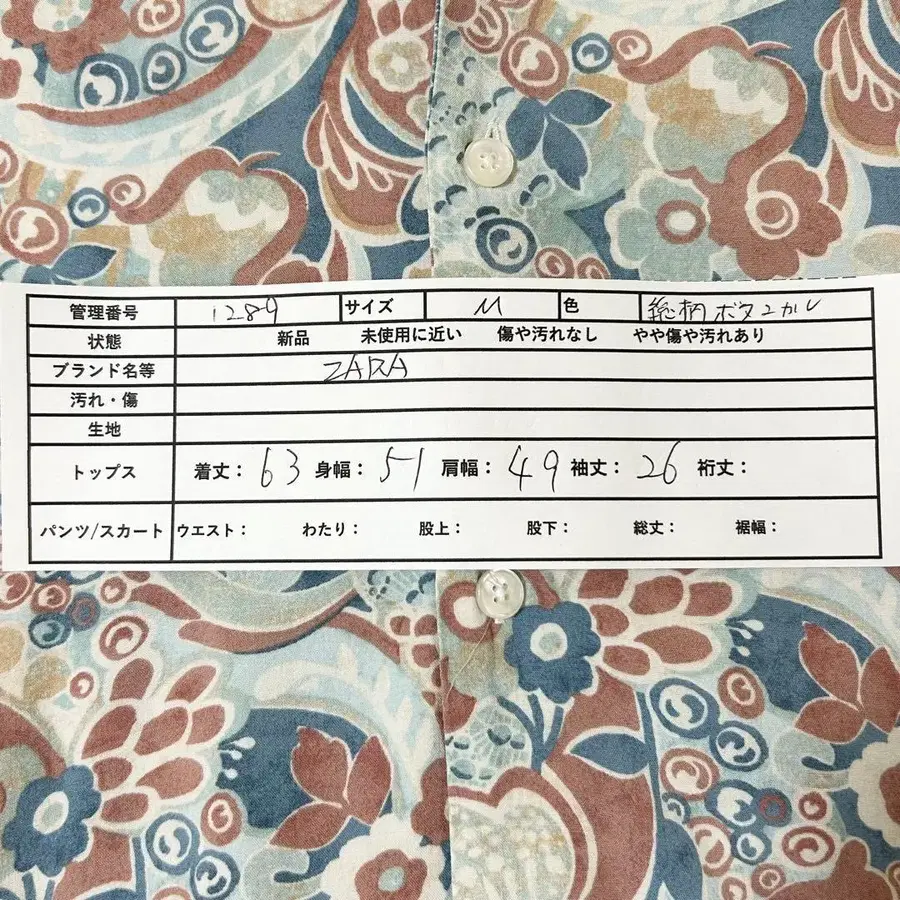 管理番号 1289 サイズ M 色 総柄 ボタニカル
状態 新品 未使用に近い 傷や汚れなし やや傷や汚れあり
ブランド名等 ZARA
汚れ・傷
生地
トップス 着丈: 63 身幅: 51 肩幅: 49 袖丈: 26 裄丈:
パンツ/スカート ウエスト: わたり: 股上: 股下: 総丈: 裾幅: